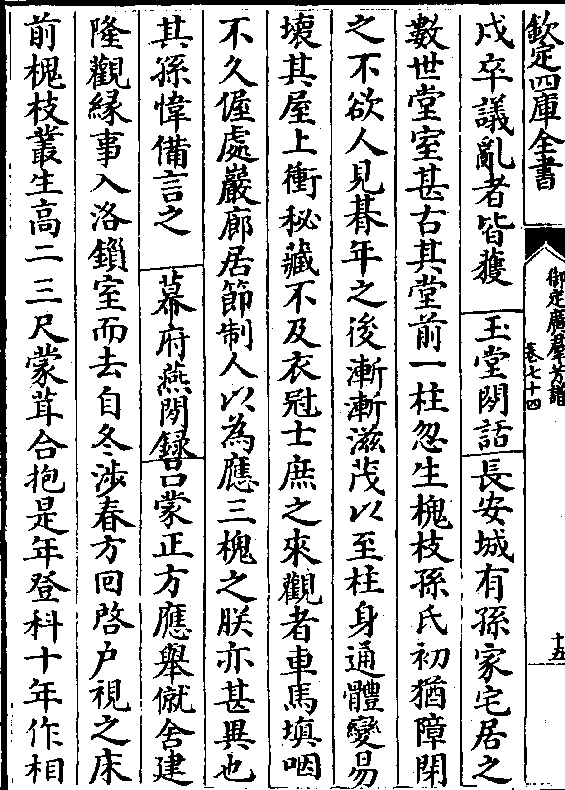 欽定四庫全書
御定廣羣芳譜
卷七十四
十五
戍卒議亂者皆獲　玉堂閒話　長安城有孫家宅居之
數世堂室甚古其堂前一柱忽生槐枝孫氏初猶障閉
之不欲人見朞年之後漸漸滋茂以至柱身通體變易
壊其屋上衝秘藏不及衣冠士庶之來觀者車馬塡咽
不久偓處巖廊居節制人以為應三槐之朕亦甚異也
其孫偉備言之　幕府燕閒録　吕蒙正方應舉僦舍建
隆觀緣事入洛鎻室而去自冬渉春方回啓户視之床
前槐枝叢生高二三尺蒙茸合抱是年登科十年作相